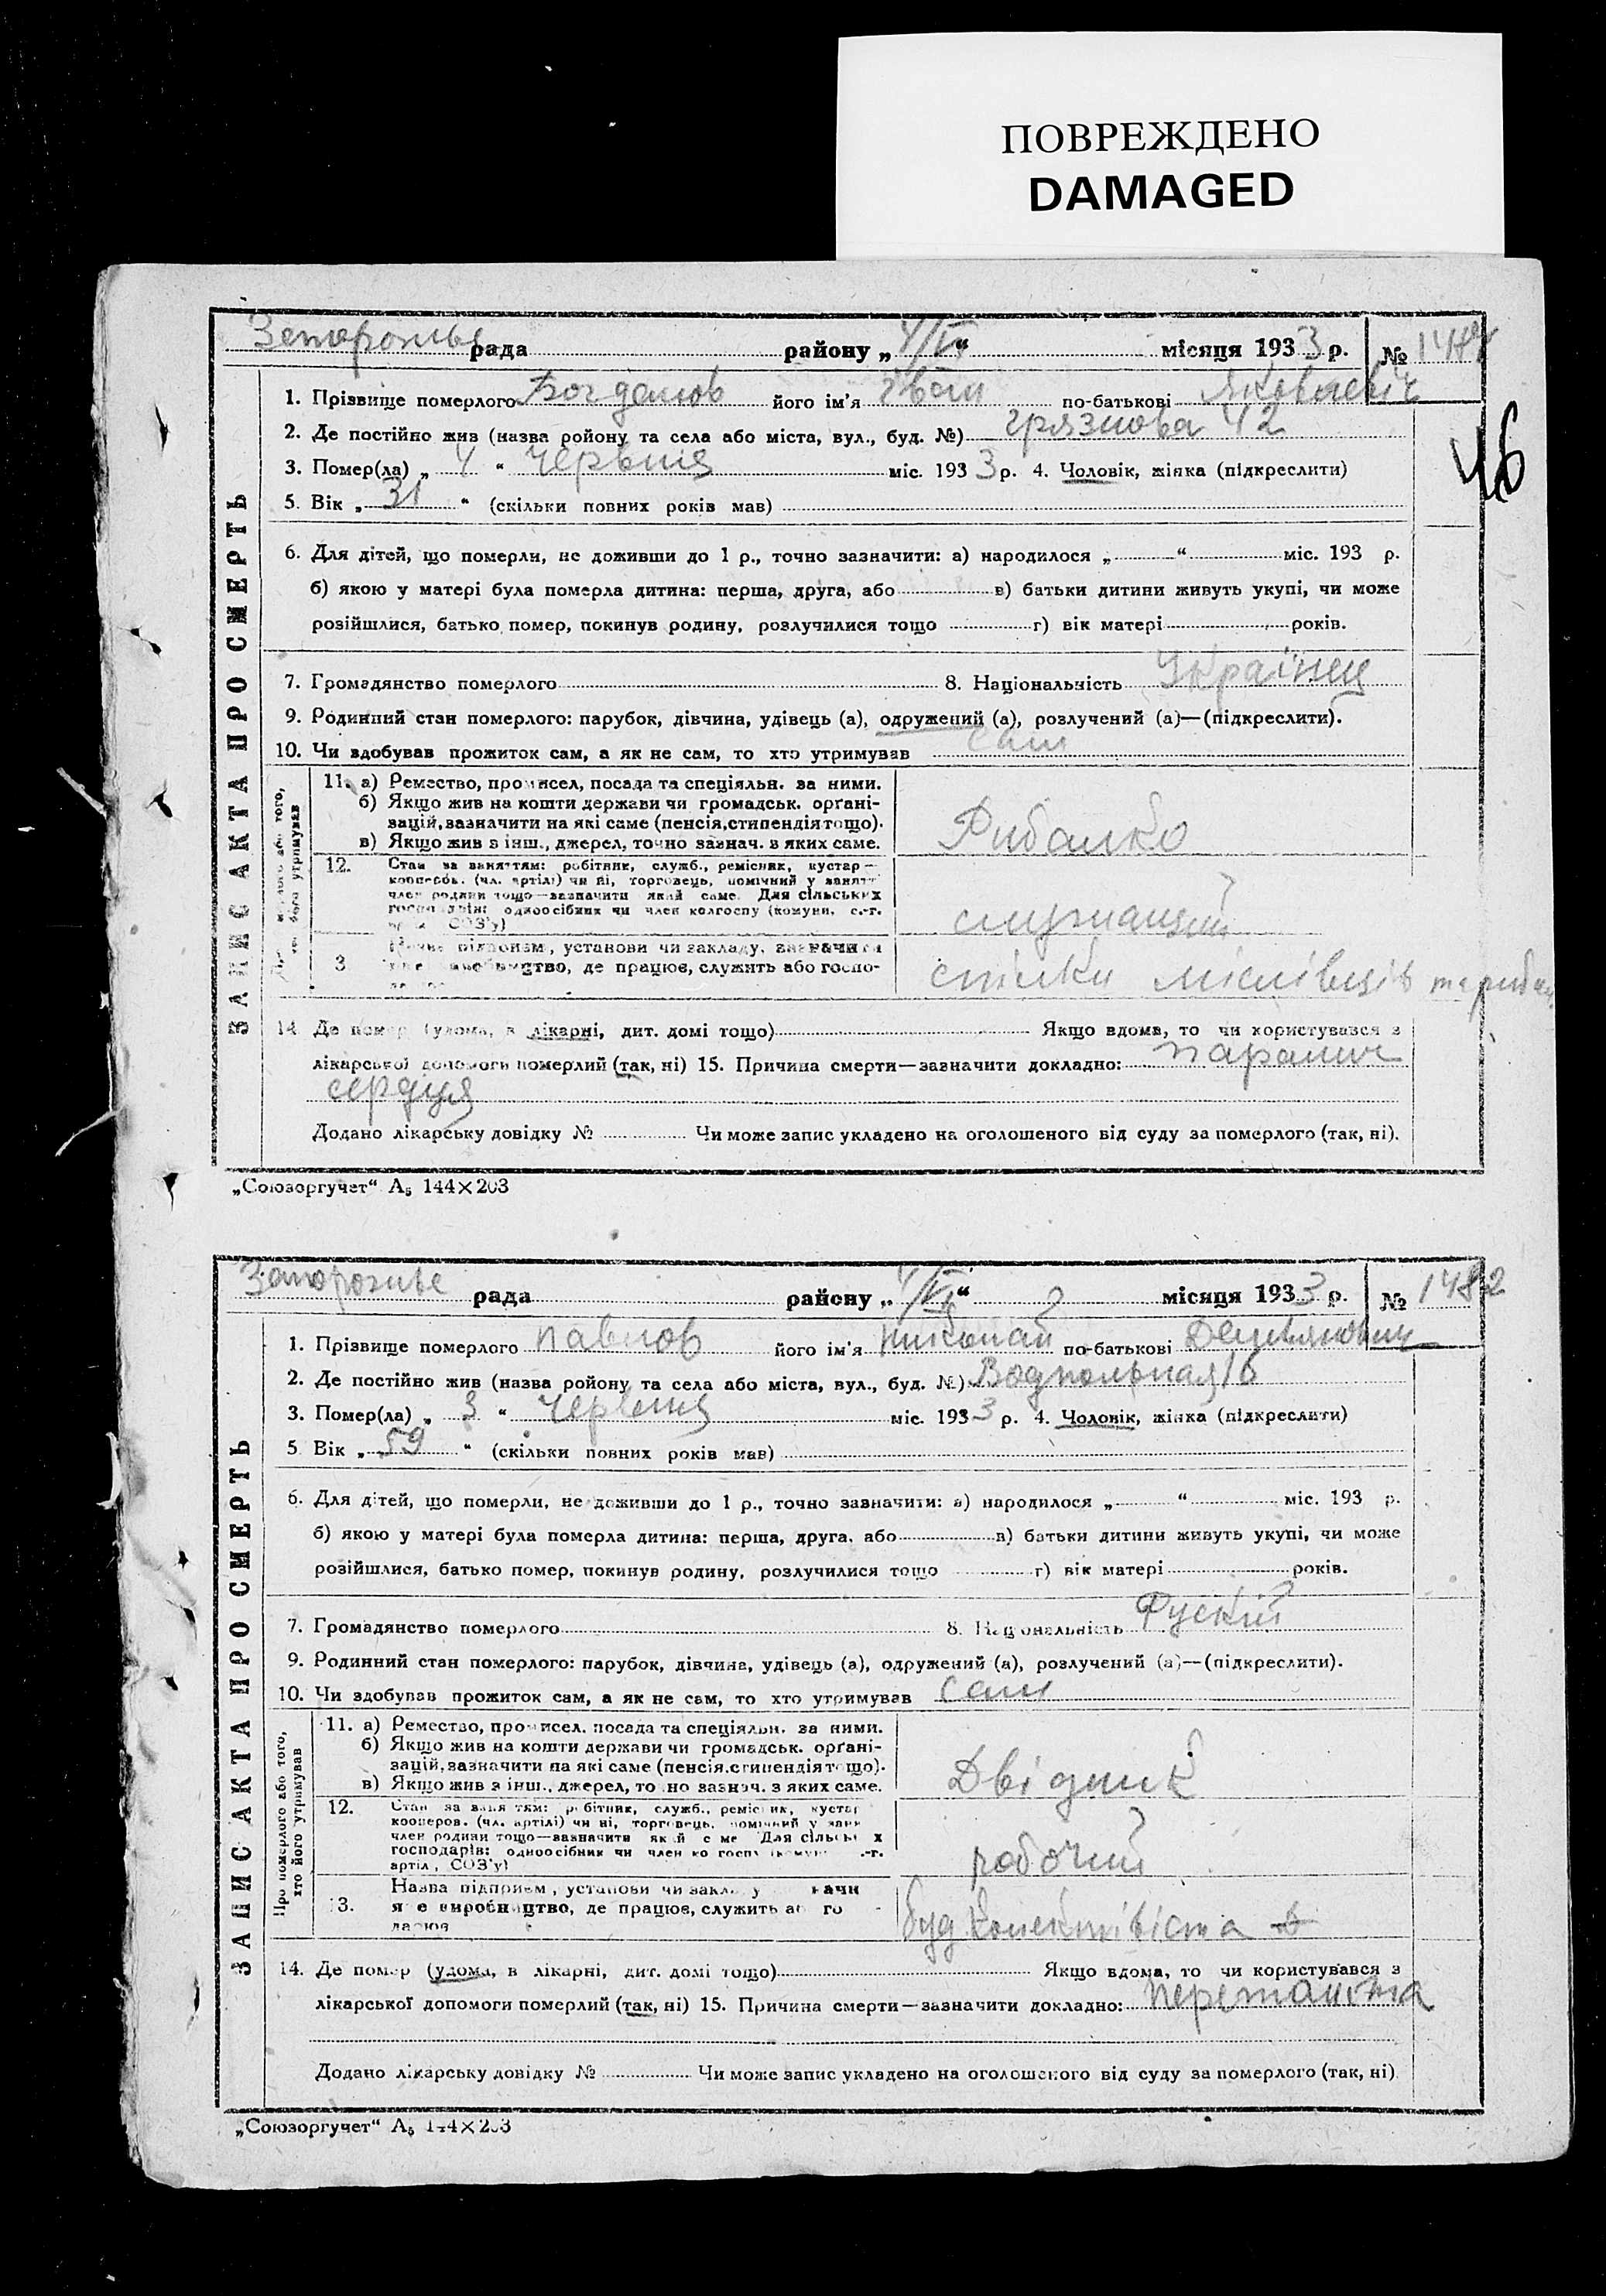 ПОВРЕЖДЕНО
DAMAGED
рада району „ 4/VI “ місяця 1933 р. №
1. Прізвище померлого Богданов його ім'я Іван по-батькові Яковлевіч
2. Де постійно жив (назва району та села або міста, вул., буд. №) Грязнова 42
46
3. Помер(ла) „ 4 “ Червня міс. 1933 р. 4. Чоловік, жінка (підкреслити)
5. Вік „ 31 “ (скільки повних років мав)
6. Для дітей, що померли, не доживши до 1 р., точно зазначити: а) народилося „ “ міс. 193 р.
б) якою у матері була померла дитина: перша, друга, або в) батьки дитини живуть укупі, чи може
розійшлися, батько помер, покинув родину, розлучилися тощо г) вік матері років.
7. Громадянство померлого 8. Національність Українец
9. Родинний стан померлого: парубок, дівчина, удівець (а), одружений (а), розлучений (а)—(підкреслити).
10. Чи здобував прожиток сам, а як не сам, то хто утримував сам
11. а) Ремество, промисел, посада та спеціяльн. за ними.
б) Якщо жив на кошти держави чи громадськ. орґані-
зацій, зазначити на які саме (пенсія, стипендія тощо).
в) Якщо жив з інш., джерел, точно зазнач. з яких саме.
Рибалко
12. Стан за заняттям: робітник, служб., ремісник, кустар—
кооперов. (чл. артілі) чи ні, торговець, помічний у занятт
член родини тощо—зазначити який саме. Для сільських
господарів: одноосібник чи член колгоспу (комуни, с.-г.
СОЗ'у)
служащий
3 підприєм, установи чи закладу, зазначити
цтво, де працюв, служить або госпо-
спілки
ЗАПИС АКТА ПРО СМЕРТЬ
14 Де помер (удома, в лікарні, дит. домі тощо) Якщо вдома, то чи користувався з
лікарської допомоги померлий (так, ні) 15. Причина смерти—зазначити докладно: параліч
сердця
Додано лікарську довідку № Чи може запис укладено на оголошеного від суду за померлого (так, ні).
„Союзоргучет“ А₅ 144×203
Запорожье рада району „ 4/VI “ місяця 1933 р. № 1482
1. Прізвище померлого Павлов його ім'я Николай по-батькові Демьянович
2. Де постійно жив (назва району та села або міста, вул., буд. №)
3. Помер(ла) „ 3 “ Червня міс. 1933 р. 4. Чоловік, жінка (підкреслити)
5 Вік „ 59 “ (скільки повних років мав)
6. Для дітей, що померли, не доживши до 1 р., точно зазначити: а) народилося „ “ міс. 193 р.
б) якою у матері була померла дитина: перша, друга, або в) батьки дитини живуть укупі, чи може
розійшлися, батько помер, покинув родину, розлучилися тощо г) вік матері років.
7. Громадянство померлого 8. Національність Рускій
9. Родинний стан померлого: парубок, дівчина, удівець (а), одружений (а), розлучений (а)—(підкреслити).
10. Чи здобував прожиток сам, а як не сам, то хто утримував сам
11. а) Ремество, промисел, посада та спеціяльн. за ними.
б) Якщо жив на кошти держави чи громадськ. орґані-
зацій, зазначити на які саме (пенсія, стипендія тощо).
в) Якщо жив з інш., джерел, точно зазнач. з яких саме.
12. Стан за заняттям: робітник, служб., ремісник, кустар
кооперов. (чл. артілі) чи ні, торговець, помічний у занят
член родини тощо—зазначити який саме Для сільських
господарів: одноосібник чи член колгоспу
артіл, СОЗ'у)
робочий
Про померлого або того,
хто його утримував
Назва підприєм, установи чи закладу
3. яке виробництво, де працюв, служить або го
ЗАПИС АКТА ПРО СМЕРТЬ
14. Де помер (удома, в лікарні, дит. домі тощо) Якщо вдома, то чи користувався з
лікарської допомоги померлий (так, ні) 15. Причина смерти—зазначити докладно:
Додано лікарську довідку № Чи може запис укладено на оголошеного від суду за померлого (так, ні)
„Союзоргучет“ А₅ 144×203